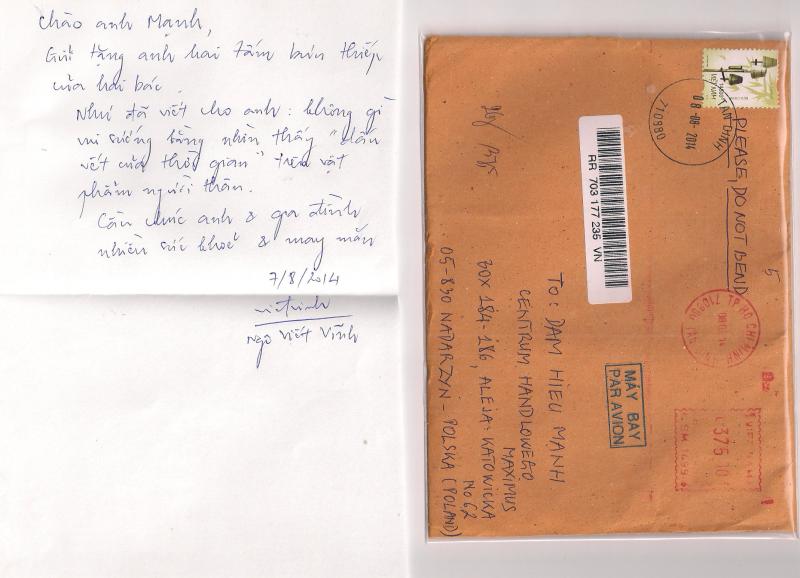 Chào anh Mạnh,
Gửi tặng anh hai tấm bưu thiếp
của hai bác.
Như đã viết cho anh: không gì
vui sướng bằng nhìn thấy "dấu
vết của thời gian" trên vật
phẩm người thân.
Cầu chúc anh & gia đình
nhiều sức khoẻ & may mắn
7/8/2014
Ngô Viết Vĩnh
PLEASE, DO NOT BEND
VIETNAM
TAN DINH
08-08-2014
710980
RR 703 177 235 VN
MÁY BAY
PAR AVION
TP HO CHI MINH
375 10
To: DAM HIEU MANH
CENTRUM HANDLOWEGO
MAXIMUS
BOX 184-186, ALEJA: KATOWICKA
No 62
05-830 NADARZYN - POLSKA (POLAND)